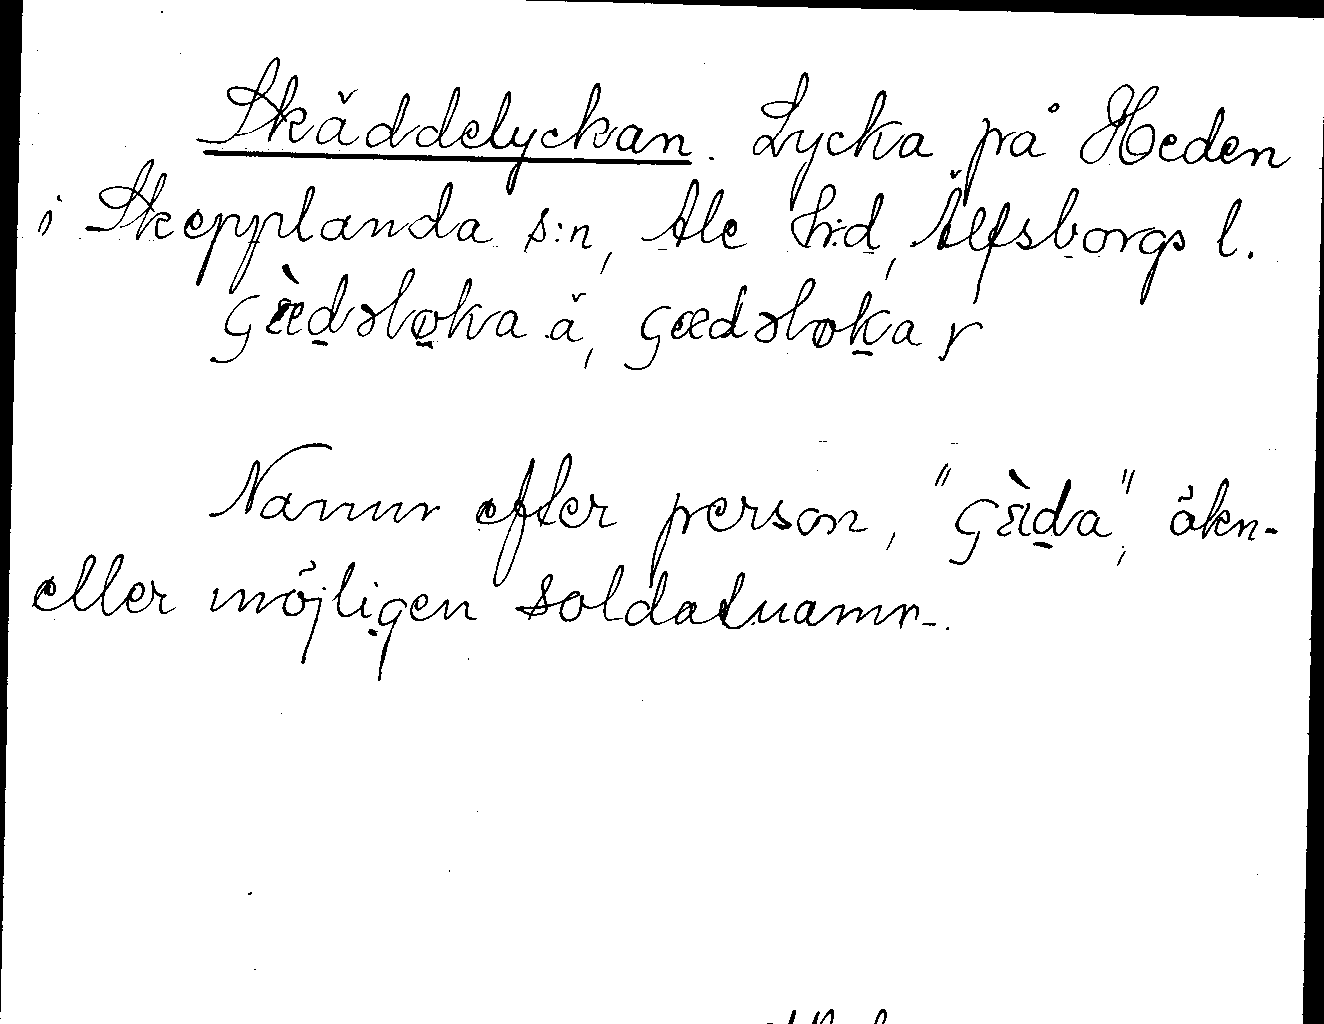 Skäddelyckan. Lycka på Heden
i Skepplanda s:n, Ale h:d, Älfsborgs l.
Namn efter person, "ʃæ̀da", ökn-
eller möjligen soldatnamn.